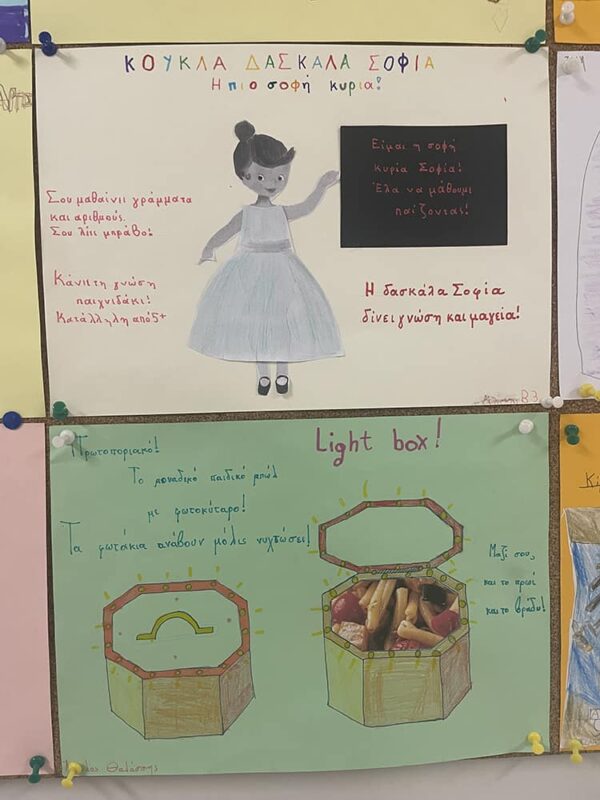 ΚΟΥΚΛΑ ΔΑΣΚΑΛΑ ΣΟΦΙΑ
Η πιο σοφή κυρία!
Είμαι η σοφή
κυρία Σοφία!
Έλα να μάθουμε
παίζοντας!
Σου μαθαίνει γράμματα
και αριθμούς.
Σου λέει μπράβο!
Κάνει τη γνώση
παιχνιδάκι!
Κατάλληλη από 5+
Η δασκάλα Σοφία
δίνει γνώση και μαγεία!
Β3
Πρωτοποριακό!
Light box!
Το μοναδικό παιδικό μπωλ
με φωτοκύταρο!
Τα φωτάκια ανάβουν μόλις νυχτώσει!
Μαζί σου,
και το πρωί
και το βράδυ!